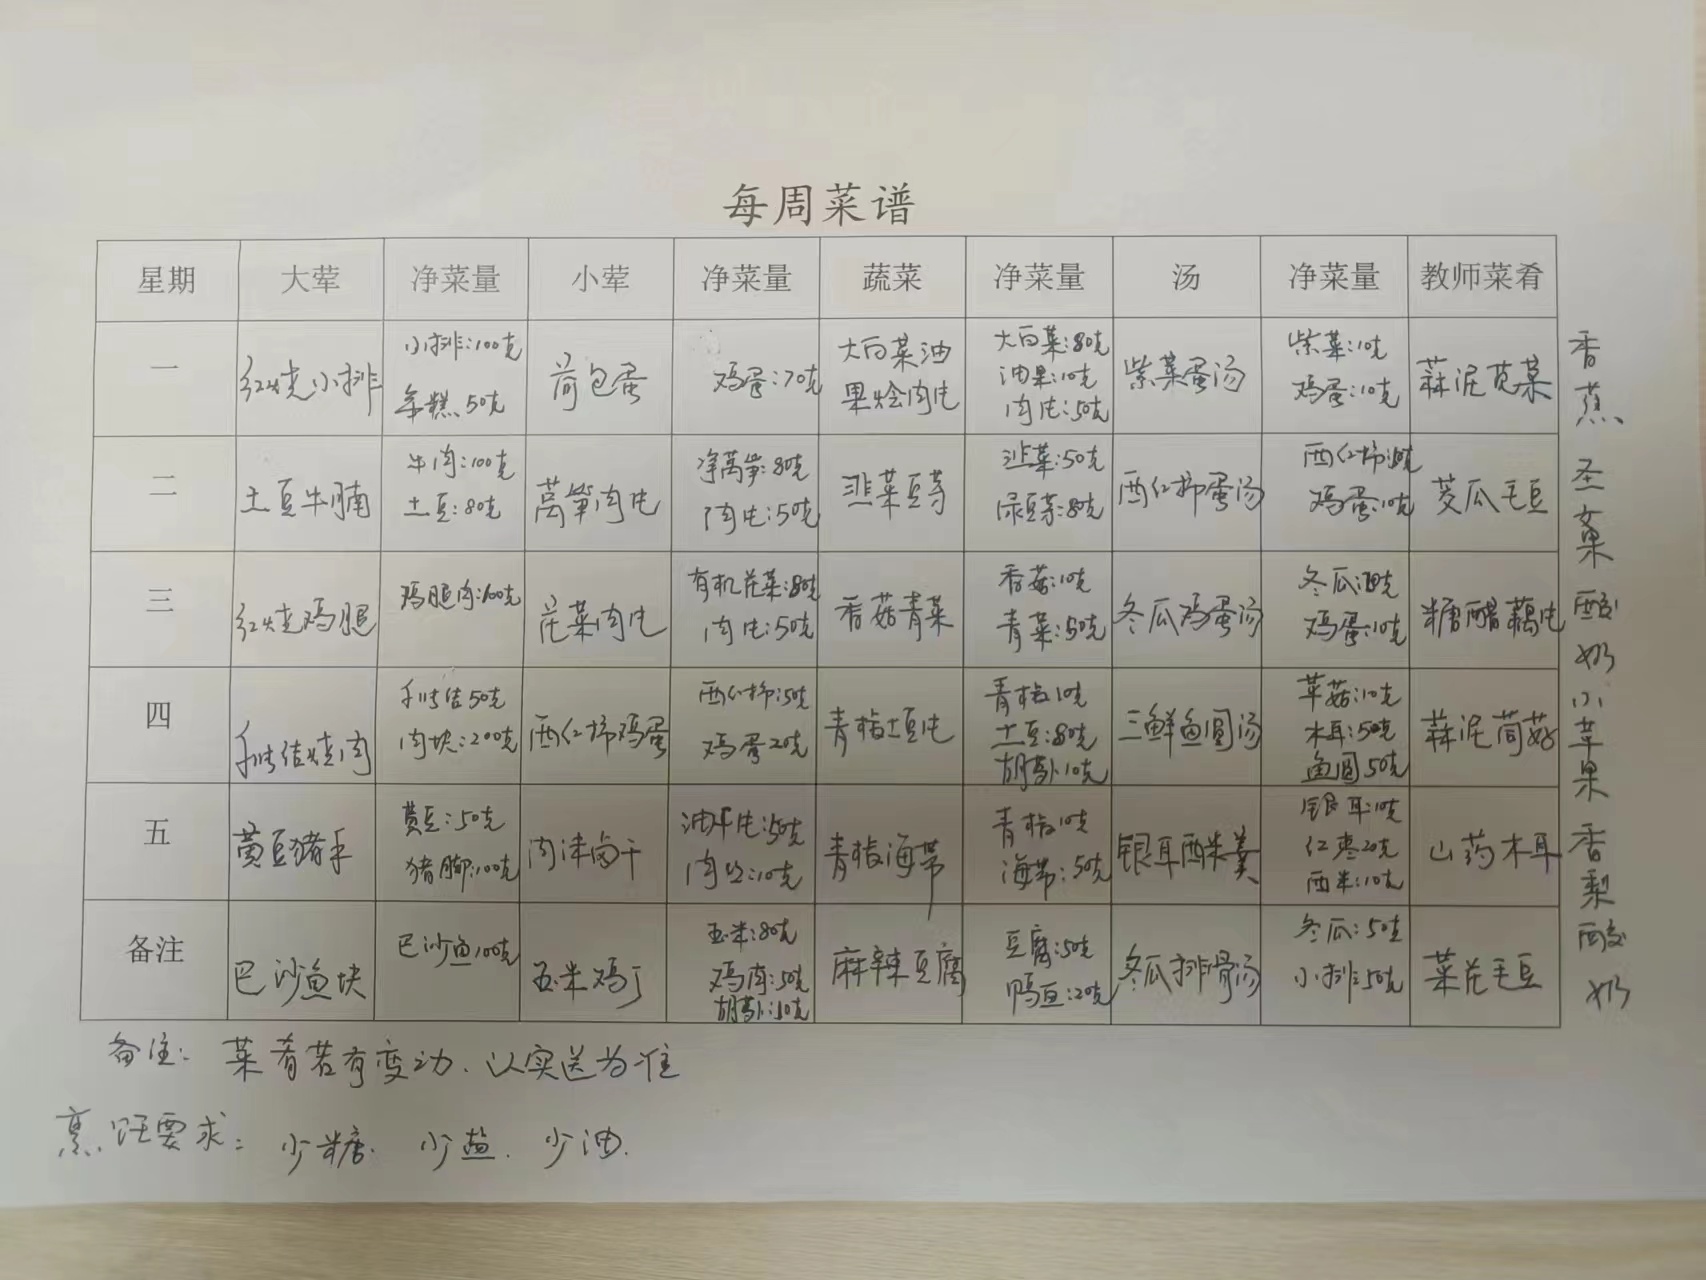 每周菜谱
星期 大荤 净菜量 小荤 净菜量 蔬菜 净菜量 汤 净菜量 教师菜肴
一 红烧小排 小排:100克 年糕50克 荷包蛋 鸡蛋:70克 大白菜油果烩肉片 大白菜:80克 油果:10克 肉片:50克 紫菜蛋汤 紫菜:10克 鸡蛋:10克 蒜泥苋菜
二 土豆牛腩 牛肉:100克 土豆:80克 莴笋肉片 净莴笋:80克 肉片:50克 韭菜豆芽 韭菜:50克 绿豆芽:80克 西红柿蛋汤 西红柿: 鸡蛋:10克 茭瓜毛豆
三 红烧鸡腿 鸡腿肉:100克 花菜肉片 有机花菜:80克 肉片:50克 香菇青菜 香菇:10克 青菜:50克 冬瓜鸡蛋汤 冬瓜: 鸡蛋:10克 糖醋藕片
四 结烧肉 结50克 肉块:200克 西红柿鸡蛋 西红柿:50克 鸡蛋20克 青椒土豆片 青椒10克 土豆:80克 胡萝卜10克 三鲜鱼圆汤 草菇:10克 木耳:50克 鱼圆50克 蒜泥茼蒿
五 黄豆猪手 黄豆:50克 猪脚:100克 肉沫卤干 油干片:50克 肉丝:10克 青椒海带 青椒10克 海带:50克 银耳酥米羹 银耳:10克 红枣20克 西米:10克 山药木耳
备注 巴沙鱼块 巴沙鱼100克 玉米鸡丁 玉米:80克 鸡肉:50克 胡萝卜:10克 麻辣豆腐 豆腐:50克 鸭血:20克 冬瓜排骨汤 冬瓜:50克 小排:50克 菜花毛豆
香蕉 圣女果 酸奶 小苹果 香梨 酸奶
备注: 菜肴若有变动、以实送为准
烹饪要求: 少糖. 少盐. 少油.